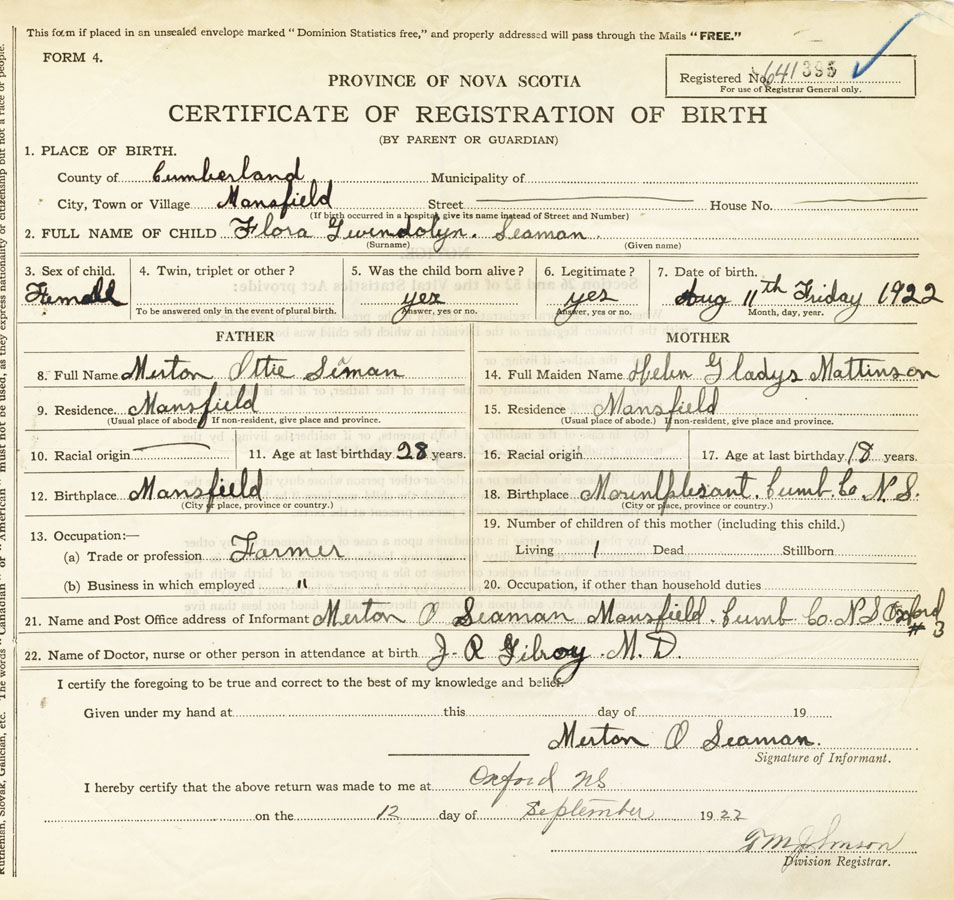 This form if placed in an unsealed envelope marked "Dominion Statistics free," and properly addressed will pass through the Mails "FREE."
FORM 4.
Registered No. 641395
For use of Registrar General only.
PROVINCE OF NOVA SCOTIA
CERTIFICATE OF REGISTRATION OF BIRTH
(BY PARENT OR GUARDIAN)
1. PLACE OF BIRTH.
County of Cumberland Municipality of
City, Town or Village Mansfield Street House No.
(If birth occurred in a hospital, give its name instead of Street and Number)
2. FULL NAME OF CHILD Flora Gwindolyn. Seaman
(Surname) (Given name)
3. Sex of child. 4. Twin, triplet or other? 5. Was the child born alive? 6. Legitimate? 7. Date of birth.
Femall yes yes Aug 11th Friday 1922
To be answered only in the event of plural birth. Answer, yes or no. Answer, yes or no. Month, day, year.
FATHER MOTHER
8. Full Name Merton Ottie Siman 14. Full Maiden Name Helen Gladys Mattinson
9. Residence Mansfield 15. Residence Mansfield
(Usual place of abode.) If non-resident, give place and province. (Usual place of abode.) If non-resident, give place and province.
10. Racial origin 11. Age at last birthday 28 years. 16. Racial origin 17. Age at last birthday 18 years.
12. Birthplace Mansfield 18. Birthplace Mountplesant. Cumb. Co. N.S.
(City or place, province or country.) (City or place, province or country.)
13. Occupation:— 19. Number of children of this mother (including this child.)
(a) Trade or profession Farmer Living 1 Dead Stillborn
(b) Business in which employed " 20. Occupation, if other than household duties
21. Name and Post Office address of Informant Merton O Seaman Mansfield. Cumb Co. N.S. Oxford
# 3
22. Name of Doctor, nurse or other person in attendance at birth J. R Gilroy. M. D.
I certify the foregoing to be true and correct to the best of my knowledge and belief.
Given under my hand at this day of 19
Merton O Seaman.
Signature of Informant.
I hereby certify that the above return was made to me at Oxford NS
on the 12 day of September 1922
Division Registrar.